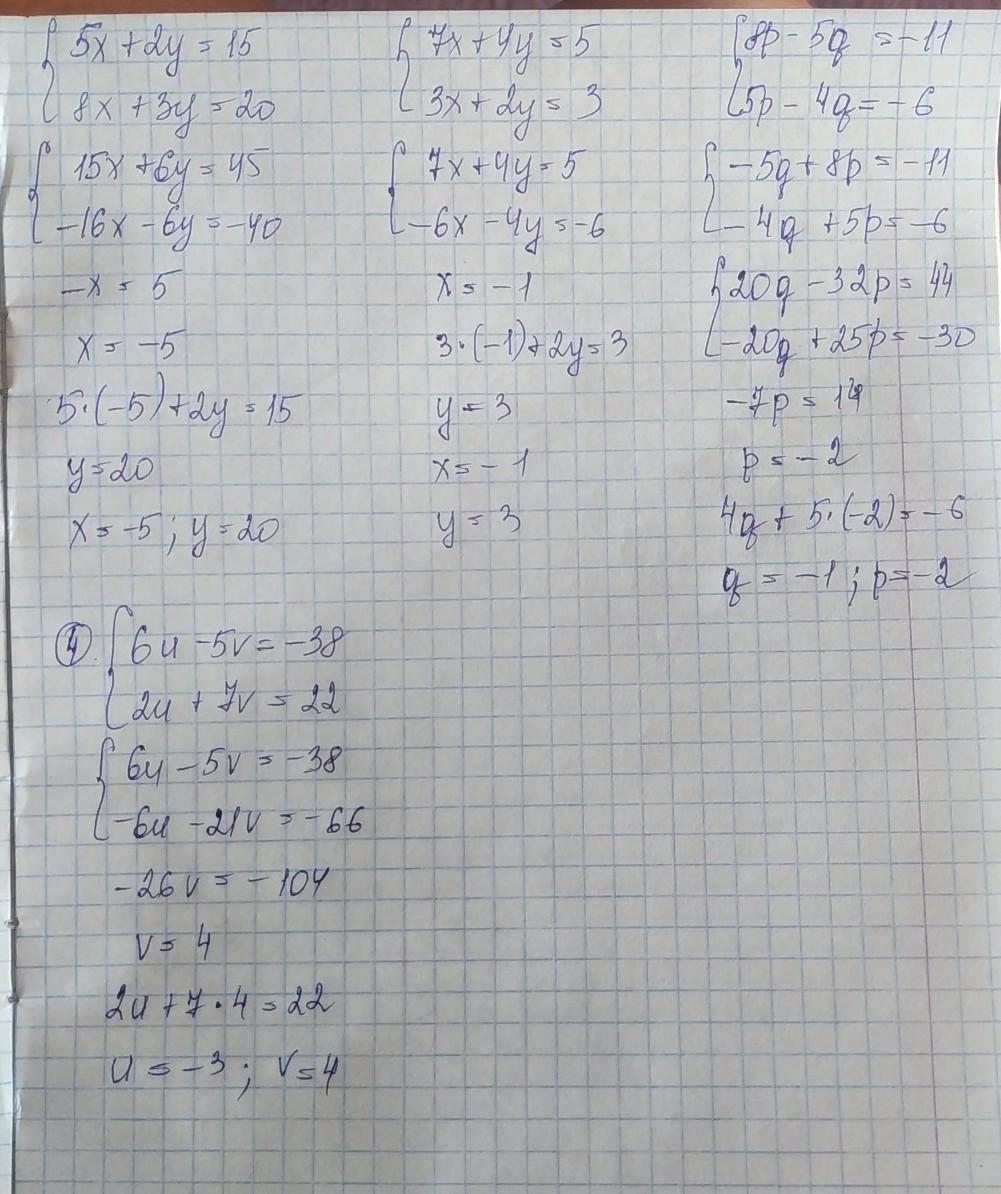 5x + 2y = 15
8x + 3y = 20
15x + 6y = 45
-16x - 6y = -40
-x = 5
x = -5
5·(-5) + 2y = 15
y = 20
x = -5; y = 20
7x + 4y = 5
3x + 2y = 3
7x + 4y = 5
-6x - 4y = -6
x = -1
3·(-1) + 2y = 3
y = 3
x = -1
y = 3
8p - 5q = -11
5p - 4q = -6
-5q + 8p = -11
-4q + 5p = -6
20q - 32p = 44
-20q + 25p = -30
-7p = 14
p = -2
4q + 5·(-2) = -6
q = -1; p = -2
4. 6u - 5v = -38
2u + 7v = 22
6u - 5v = -38
-6u - 21v = -66
-26v = -104
v = 4
2u + 7·4 = 22
u = -3; v = 4